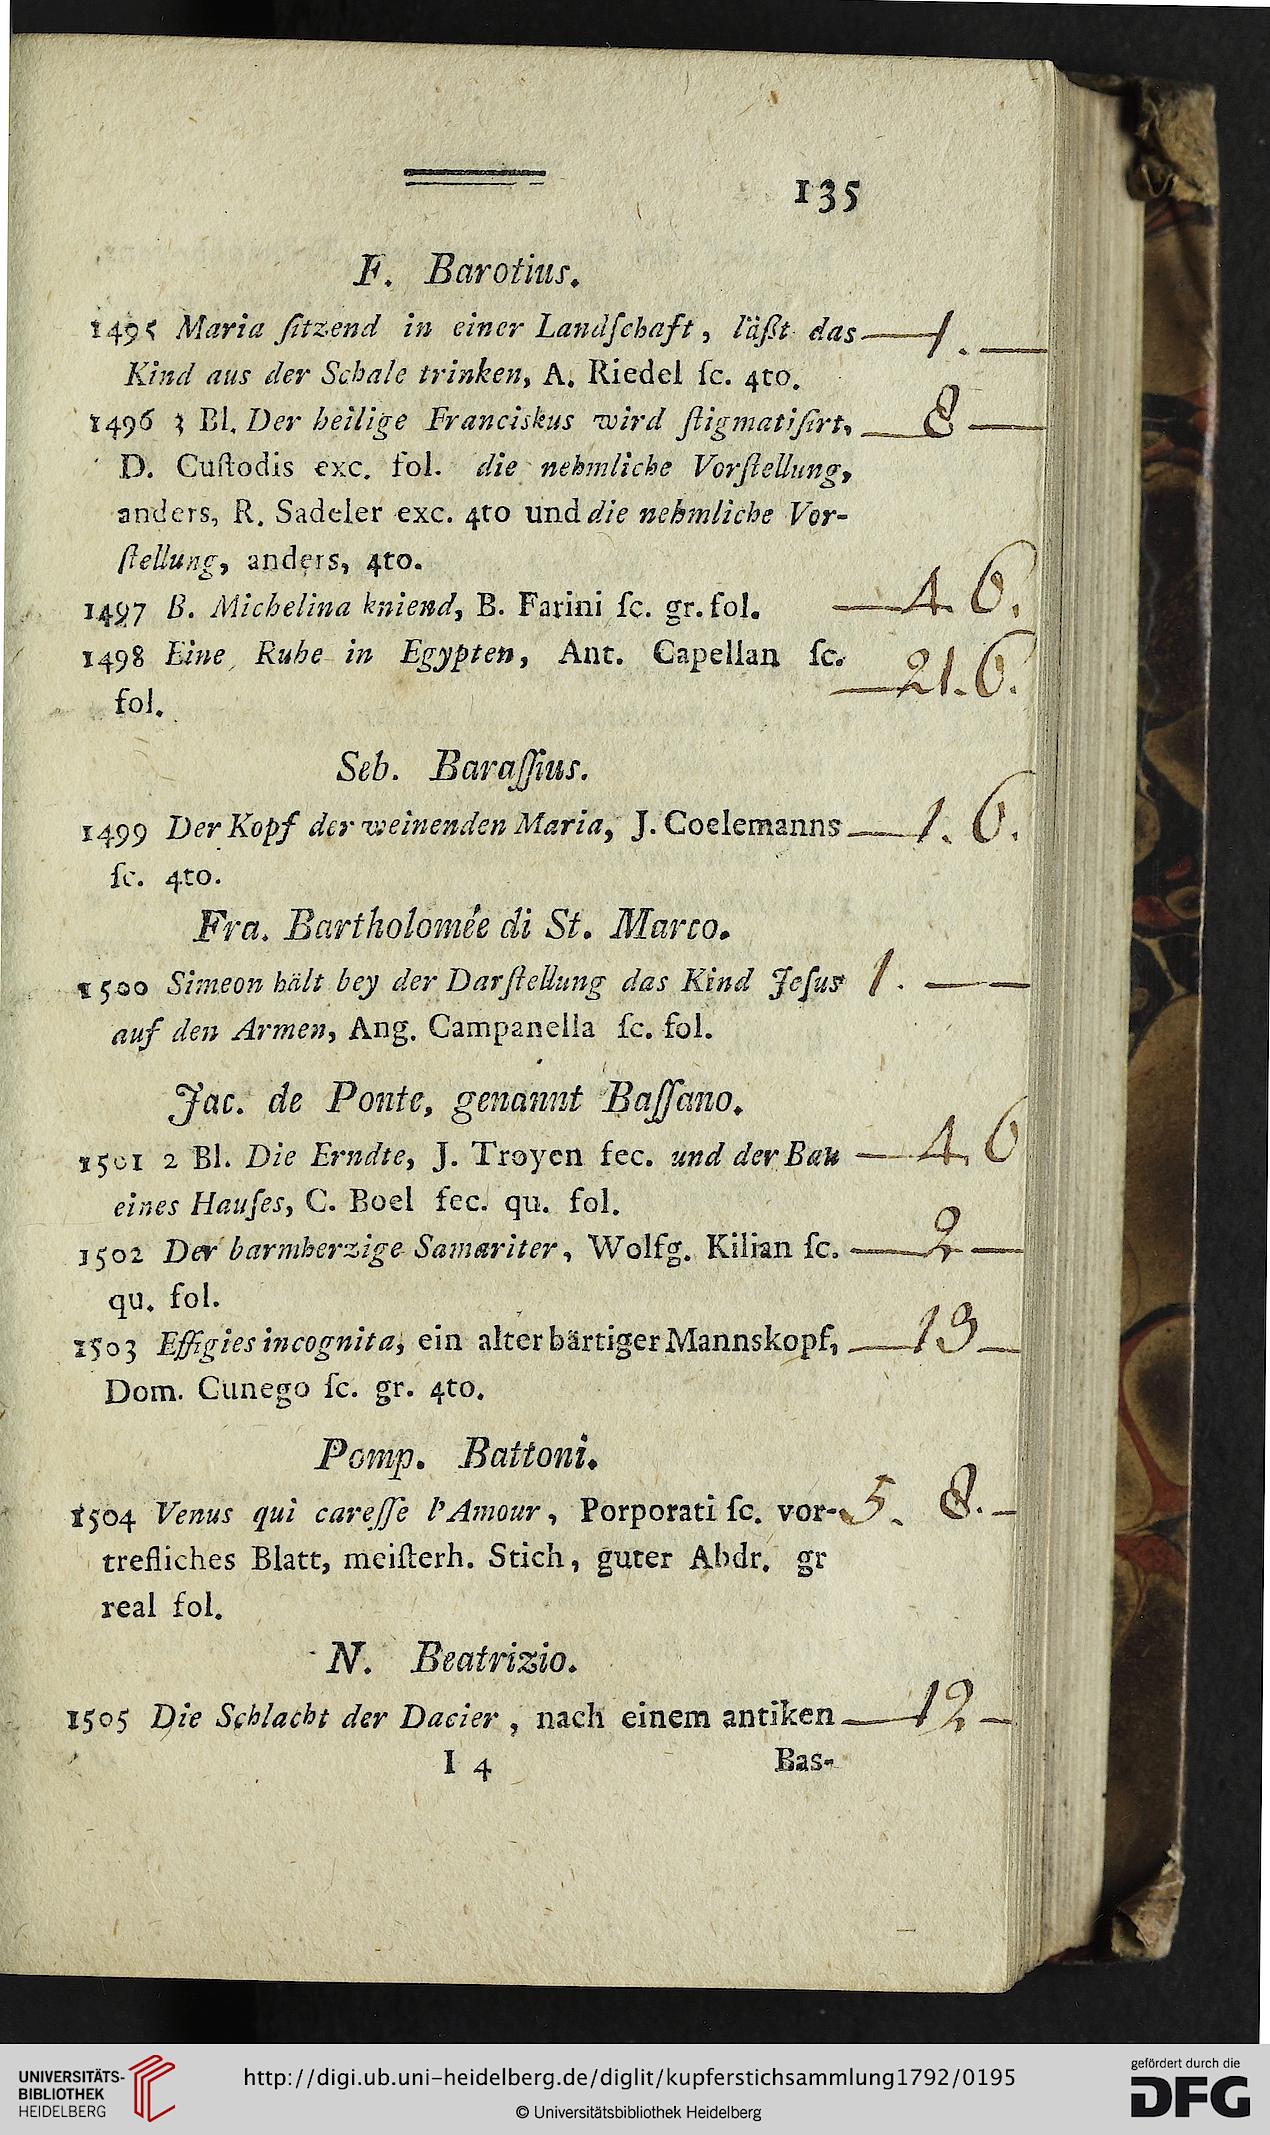 135
F. Barotius.
1495 Maria ſitzend in einer Landſchaft, läßt das — 1. —
Kind aus der Schale trinken, A. Riedel ſc. 4to.
1496 3 Bl. Der heilige Franciskus wird ſtigmatiſirt, — 8 —
D. Cuſtodis exc. fol. die nehmliche Vorſtellung,
anders, R. Sadeler exc. 4to und die nehmliche Vor-
ſtellung, anders, 4to.
1497 B. Michelina kniend, B. Farini ſc. gr. fol. — 4. 6.
1498 Eine Ruhe in Egypten, Ant. Capellan ſc. — 21. 6.
fol.
Seb. Baraſſius.
1499 Der Kopf der weinenden Maria, J. Coelemanns — 1. 6.
ſc. 4to.
Fra. Bartholomée di St. Marco.
1500 Simeon hält bey der Darſtellung das Kind Jeſus 1. —
auf den Armen, Ang. Campanella ſc. fol.
Jac. de Ponte, genannt Baſſano.
1501 2 Bl. Die Erndte, J. Troyen fec. und der Bau — 4. 6
eines Hauſes, C. Boel fec. qu. fol.
1502 Der barmherzige Samariter, Wolfg. Kilian ſc. — 2 —
qu. fol.
1503 Effigies incognita, ein alter bärtiger Mannskopf, — 13 —
Dom. Cunego ſc. gr. 4to.
Pomp. Battoni.
1504 Venus qui careſſe l'Amour, Porporati ſc. vor- 5. 8. —
trefliches Blatt, meiſterh. Stich, guter Abdr. gr
real fol.
N. Beatrizio.
1505 Die Schlacht der Dacier, nach einem antiken — 12 —
I 4 Bas-
UNIVERSITÄTS-
BIBLIOTHEK
HEIDELBERG
http://digi.ub.uni-heidelberg.de/diglit/kupferstichsammlung1792/0195
© Universitätsbibliothek Heidelberg
gefördert durch die
DFG